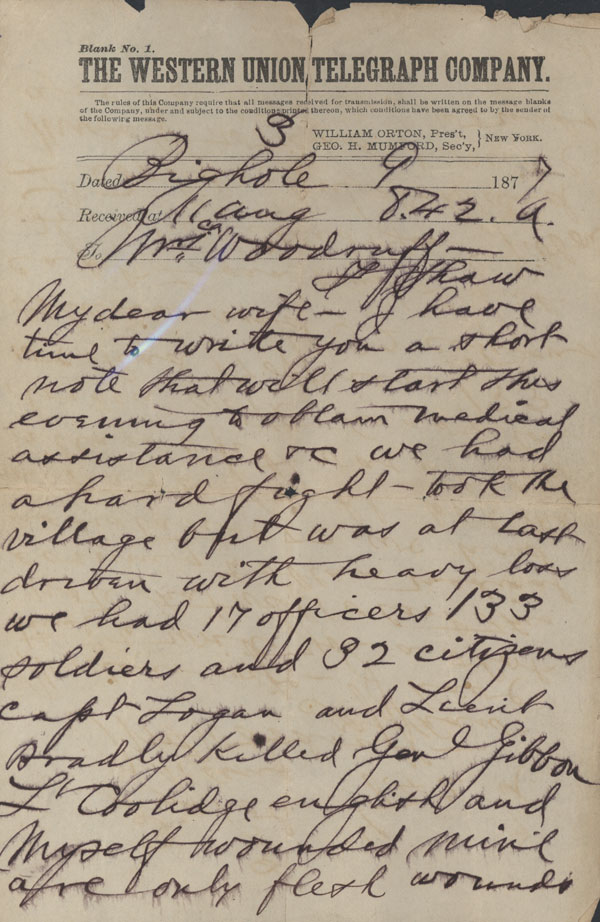 Blank No. 1.
THE WESTERN UNION TELEGRAPH COMPANY.
The rules of this Company require that all messages received for transmission, shall be written on the message blanks
of the Company, under and subject to the conditions printed thereon, which conditions have been agreed to by the sender of
the following message.
3
WILLIAM ORTON, Pres't,
GEO. H. MUMFORD, Sec'y, } NEW YORK.
Dated Bighole 9 1877
Received at 11 aug 8.42. a.
To Mrs Ca Woodruff—
Ft Shaw
My dear wife— I have
time to write you a short
note that will start this
evening to obtain medical
assistance &c we had
a hard fight— took the
village but was at last
driven with heavy loss
we had 17 officers 133
soldiers and 32 citizens
capt Logan and Lieut
Bradly killed Genl Gibbon
Lt Coolidge english and
Myself wounded mine
are only flesh wounds